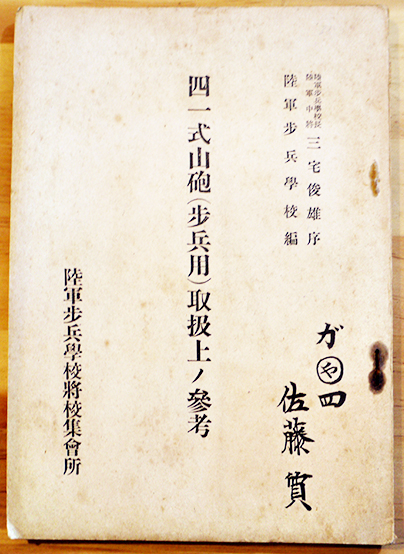 陸軍步兵學校長
陸軍中將
三宅俊雄序
陸軍步兵學校編
四一式山砲(步兵用)取扱上ノ參考
陸軍步兵學校將校集會所
が㋳四
佐藤實